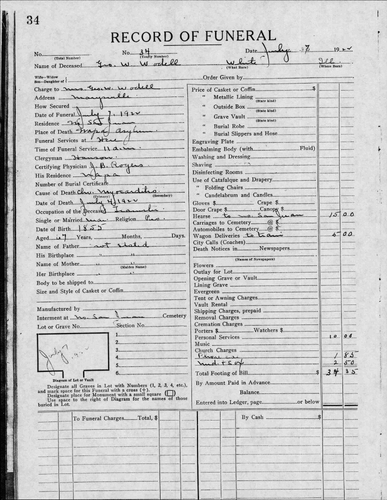 34
RECORD OF FUNERAL
No. No. 34 Date July 7 1922
(Total Number) (Yearly Number)
Name of Deceased Geo. W. Wodell White Ill
(What Race) (Where Born)
Order Given by
Charge to Mrs Geo. W. Wodell
Address Marysville
How Secured
Date of Funeral July 7, 1922
Residence
Place of Death Napa Asylum
Funeral Services at Here
Time of Funeral Service 11 a.m.
Clergyman
Certifying Physician J. B. Rogers
His Residence Napa
Number of Burial Certificate
Cause of Death Chr. Myocarditis
Date of Death July 4, 1922
Occupation of the Deceased
Single or Married Mar Religion
Date of Birth 1855
Aged 67 Years Months, Days.
Name of Father not stated
His Birthplace
Name of Mother
(Maiden Name)
Her Birthplace
Body to be shipped to
Size and Style of Casket or Coffin
Manufactured by
Interment at Cemetery
Lot or Grave No. Section No.
1.
2.
3.
4.
5.
6.
Diagram of Lot or Vault
Designate all Graves in Lot with Numbers (1, 2, 3, 4, etc.), and mark space for this Funeral with a cross (+).
Designate place for Monument with a small square
Use space to the right of Diagram for the names of those buried in Lot.
Price of Casket or Coffin $
" Metallic Lining
(State kind)
" Outside Box
(State kind)
" Grave Vault
(State kind)
" Burial Robe
(State kind)
" Burial Slippers and Hose
Engraving Plate
Embalming Body (with Fluid)
Washing and Dressing
Shaving
Disinfecting Rooms
Use of Catafalque and Drapery
" Folding Chairs
" Candelabrum and Candles
Gloves $ Crape $
Door Crape $ Canopy $
Hearse to 15 00
Carriages to Cemetery @ $
Automobiles to Cemetery @ $
Wagon Deliveries to train 5 00
City Calls (Coaches)
Death Notices in Newspapers
(Names of Newspapers)
Flowers
Outlay for Lot
Opening Grave or Vault
Lining Grave
Evergreen
Tent or Awning Charges
Vault Rental
Shipping Charges, prepaid
Removal Charges
Cremation Charges
Porters $ Watchers $
Personal Services 10 00
Music
Church Charges
Phone 1 85
2 50
Total Footing of Bill $ 34 35
By Amount Paid in Advance
Balance
Entered into Ledger, page or below.
To Funeral Charges, Total $ By Cash $